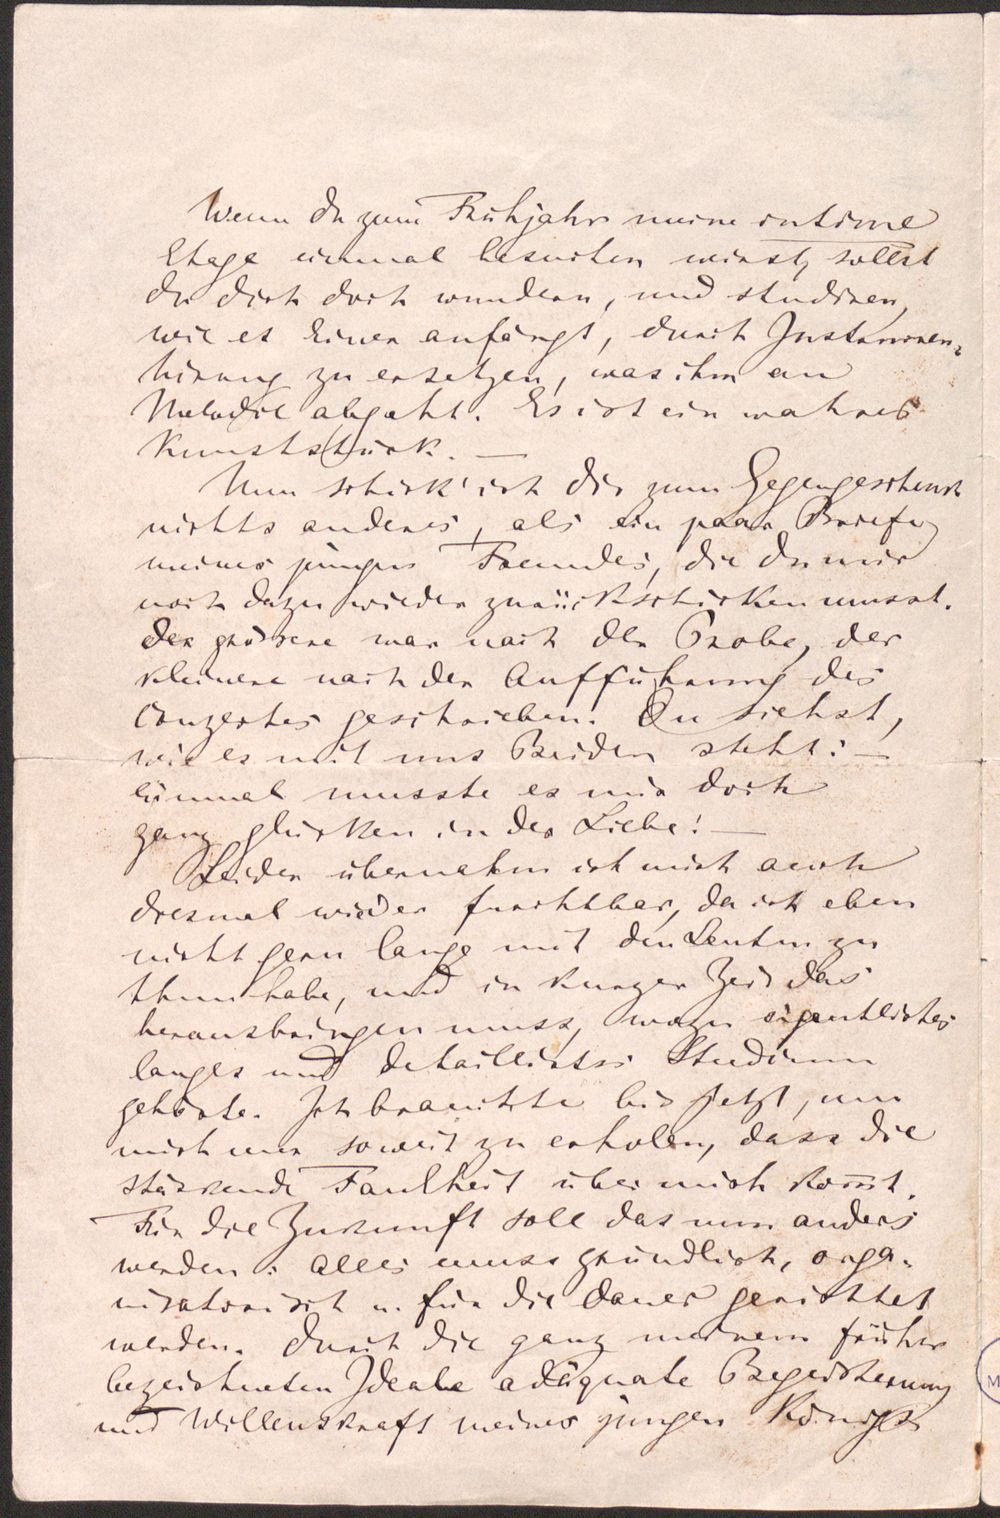 Wenn du zum Frühjahr meine intime
Etage einmal besuchen wirst, sollst
du dich doch wundern, und studiren,
wie es Einer anfängt, durch Instrumen-
tirung zu ersetzen, was ihm an
Melodie abgeht. Es ist ein wahres
Kunststück. —
Nun schick' ich dir zum Gegengeschenk
nichts anderes, als ein paar Briefe
meines jungen Freundes, die du mir
noch dazu wieder zurückschicken musst.
der grössere war nach der Probe, der
kleinere nach der Aufführung des
Conzertes geschrieben. Du siehst,
wie es mit uns Beiden steht: —
einmal musste es mir doch
ganz glücken in der Liebe! —
Leider übernahm ich mich auch
diesmal wieder furchtbar, da ich eben
nicht gern lange mit den Leuten zu
thun habe, und in kurzer Zeit das
herausbringen muss, wozu eigentliches
langes und detaillirtes Studium
gehörte. Ich brauchte bis jetzt, um
mich nur soweit zu erholen, dass die
stärkende Faulheit über mich kom̅t.
Für die Zukunft soll das nun anders
werden: alles muss gründlich, orga-
nisatorisch u. für die Dauer gerichtet
werden. Durch die ganz meinem früher
bezeichneten Ideale adäquate Begeisterung
und Willenskraft meines jungen Königs
M